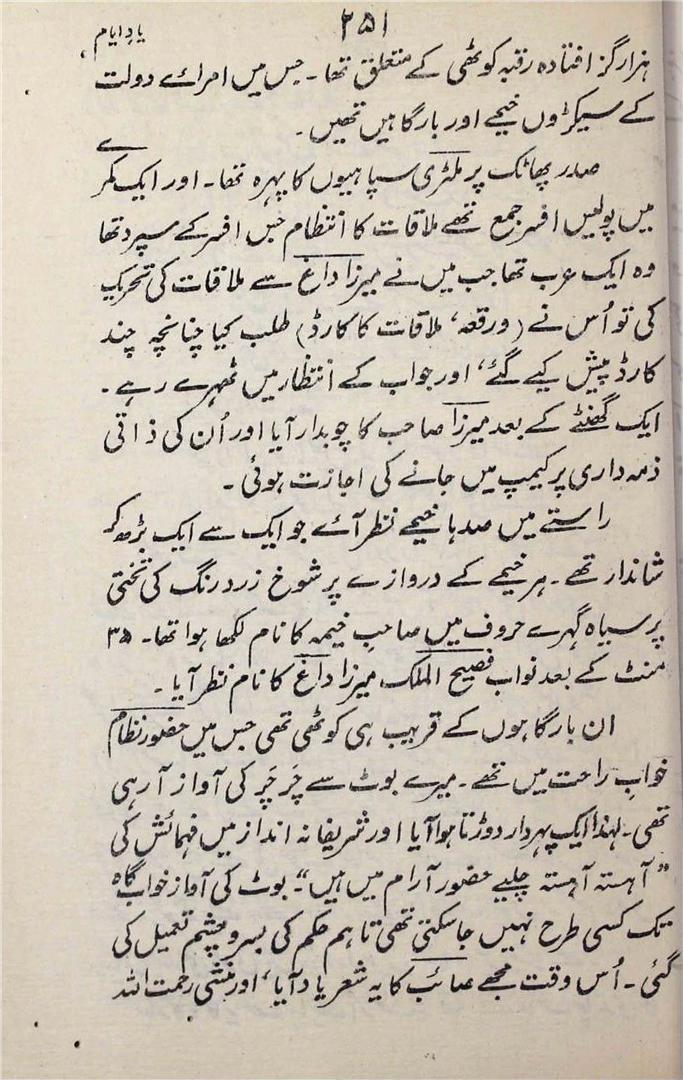 ۲۵۱
یادِ ایام
ہزار گز افتادہ رقبہ کوٹھی کے متعلق تھا۔ جس میں امرائے دولت
کے سیکڑوں خیمے اور بارگاہیں تھیں۔
صدر پھاٹک پر ملٹری سپاہیوں کا پہرہ تھا۔ اور ایک کمرے
میں پولیس افسر جمع تھے ملاقات کا انتظام جس افسر کے سپرد تھا
وہ ایک عرب تھا جب میں نے میرزا داغ سے ملاقات کی تحریک
کی تو اُس نے (ورقعہ، ملاقات کا کارڈ) طلب کیا چنانچہ چند
کارڈ پیش کیے گئے، اور جواب کے انتظار میں ٹھہرے رہے۔
ایک گھنٹے کے بعد میرزا صاحب کا چوبدار آیا اور اُن کی ذاتی
ذمہ داری پر کیمپ میں جانے کی اجازت ہوئی۔
راستے میں صدہا خیمے نظر آئے جو ایک سے ایک بڑھ کر
شاندار تھے۔ ہر خیمے کے دروازے پر شوخ زرد رنگ کی تختی
پر سیاہ گہرے حروف میں صاحبِ خیمہ کا نام لکھا ہوا تھا۔ ۳۵
منٹ کے بعد نواب فصیح الملک میرزا داغ کا نام نظر آیا۔
ان بارگاہوں کے قریب ہی کوٹھی تھی جس میں حضور نظام
خوابِ راحت میں تھے۔ میرے بوٹ سے چَرچَر کی آواز آرہی
تھی۔ لہٰذا ایک پہردار دوڑتا ہوا آیا اور شریفانہ انداز میں فہمائش کی
”آہستہ آہستہ چلیے حضور آرام میں ہیں“۔ بوٹ کی آواز خواب گاہ
تک کسی طرح نہیں جاسکتی تھی تاہم حکم کی بسروچشم تعمیل کی
گئی۔ اُس وقت مجھے صائب کا یہ شعر یاد آیا، اور منشی رحمت اللہ